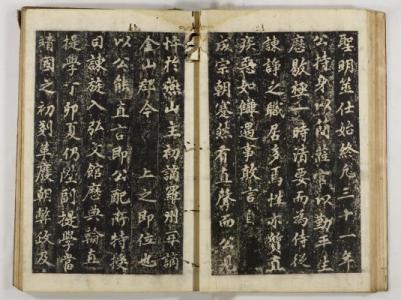 聖明並仕始終凡三十一年
公持身以簡莅官以勤平生
歷敭極一時清要而為侍從
諫諍之職居多焉性亦鯁直
疾惡如讎遇事敢言自
成宗朝蹇然有直聲而公見
忤於燕山主初謫羅州再謫
金山郡今 上之即位也
以公能直言即公配所特授
司諫旋入弘文館歷典翰直
提學丁卯夏仍陞副提學當
靖國之初刻革廢朝弊政及